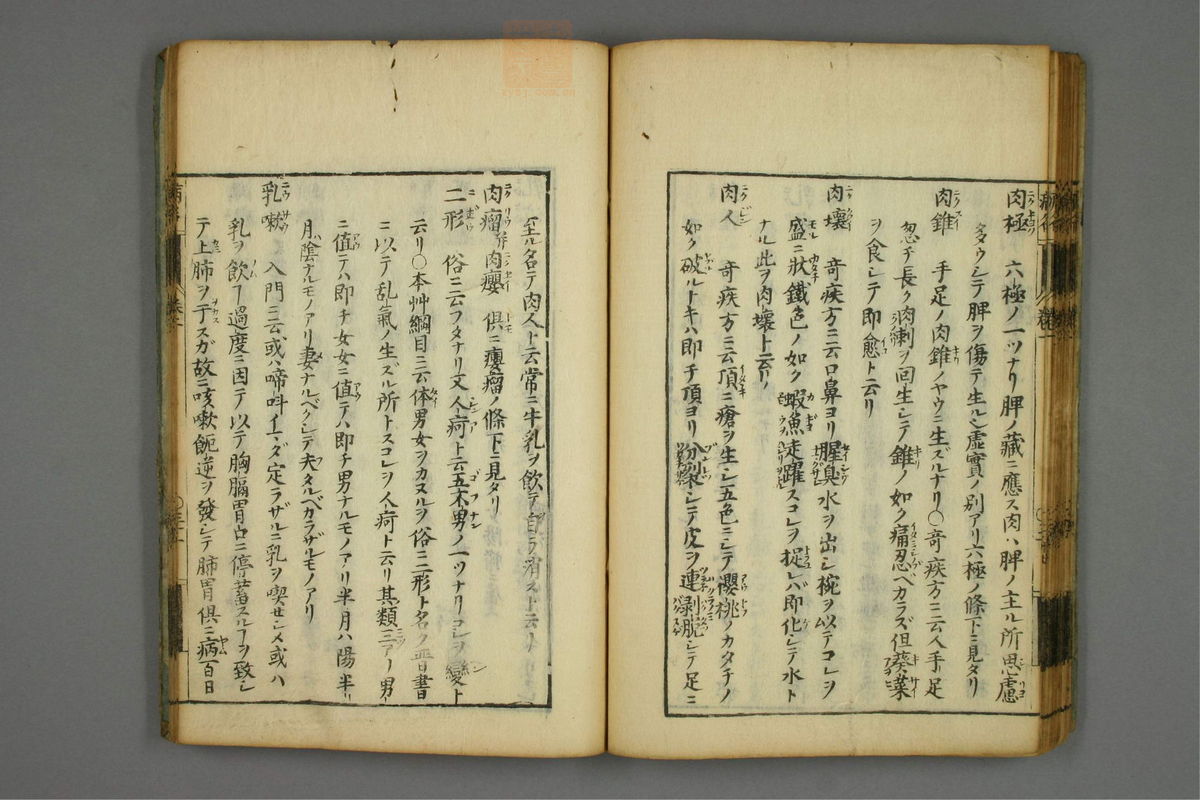 肉極 六極ノ一ツナリ脾ノ藏ニ應ス肉ハ脾ノ主ル所思慮
多ウシテ脾ヲ傷テ生ル虚實ノ別アリ六極ノ條下ニ見タリ
肉錐 手足ノ肉錐ノヤウニ生ズルナリ〇奇疾方ニ云人手足
忽チ長ク肉刺ヲ回生シテ錐ノ如ク痛忍ベカラズ但葵菜
ヲ食シテ即愈ト云リ
肉壞 奇疾方ニ云口鼻ヨリ腥臭水ヲ出シ椀ヲ以テコレヲ
盛ニ狀鐵色ノ如ク蝦魚走躍スコレヲ捉レバ即化シテ水ト
ナル此ヲ肉壞ト云リ
肉人 奇疾方ニ云頂ニ瘡ヲ生シ五色ニシテ櫻桃ノカタチノ
如ク破ルトキハ即チ頂ヨリ分裂シテ皮ヲ連剥脱シテ足ニ
至ル名テ肉人ト云常ニ牛乳ヲ飲テ自ラ消スト云リ
肉瘤并肉癭 倶ニ癭瘤ノ條下ニ見タリ
二形 俗ニ云フタナリ又人疴ト云五不男ノ一ツナリコレヲ變ト
云リ〇本艸綱目ニ云体男女ヲカヌルヲ俗ニ二形ト名ク晋書
ニ以テ乱氣ノ生ズル所トスコレヲ人疴ト云リ其類三アリ男
ニ値テハ即チ女女ニ値テハ即チ男ナルモノアリ半月ハ陽半
月ハ陰ナルモノアリ妻ナルベクシテ夫タルベカラザルモノアリ
乳嗽 入門ニ云或ハ啼呌イマダ定ラザルニ乳ヲ喫セシメ或ハ
乳ヲ飲ヿ過度ニ因テ以テ胸膈胃口ニ停蓄スルヿヲ致シ
テ上肺ヲ干スガ故ニ咳嗽呃逆ヲ發シテ肺胃倶ニ病百日